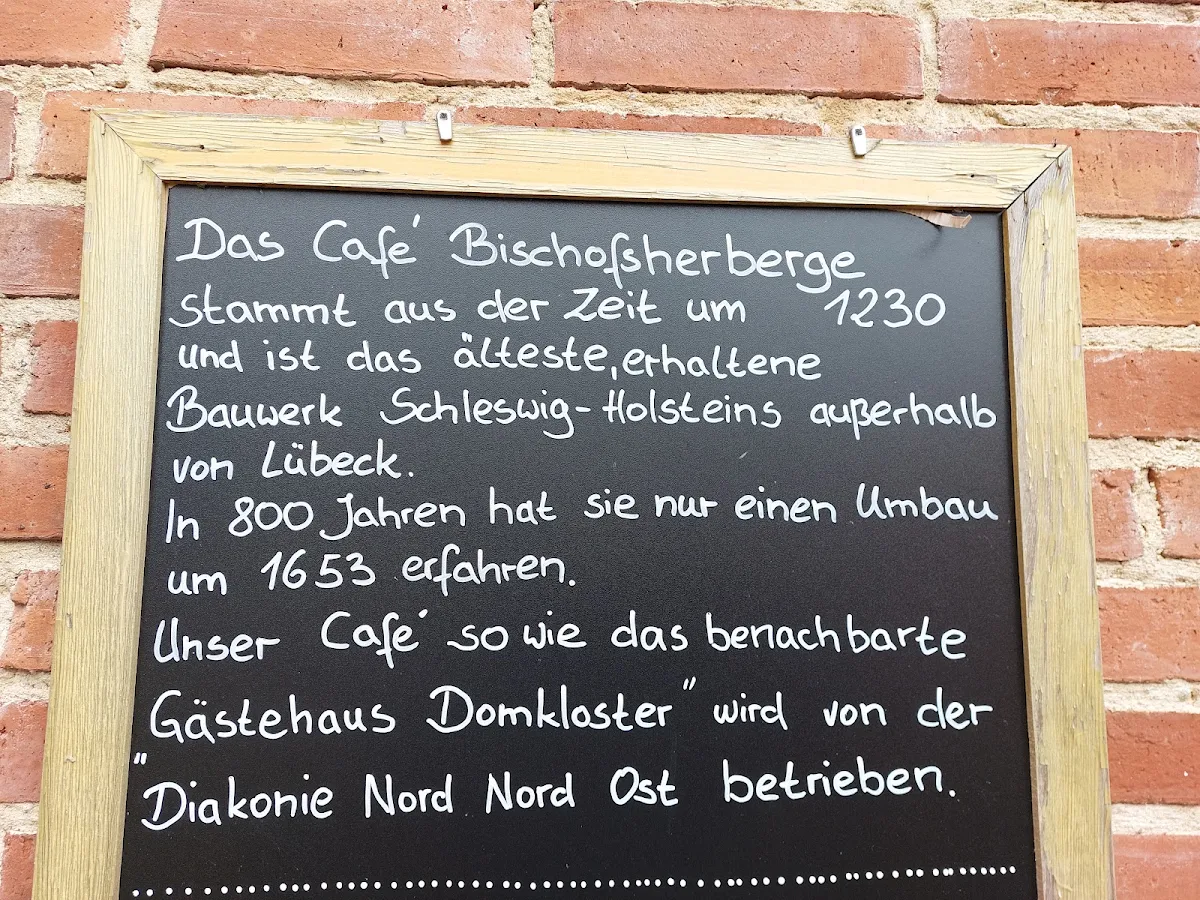 Das Café Bischofsherberge
stammt aus der Zeit um 1230
und ist das älteste, erhaltene
Bauwerk Schleswig-Holsteins außerhalb
von Lübeck.
In 800 Jahren hat sie nur einen Umbau
um 1653 erfahren.
Unser Café sowie das benachbarte
Gästehaus Domkloster" wird von der
"Diakonie Nord Nord Ost betrieben.